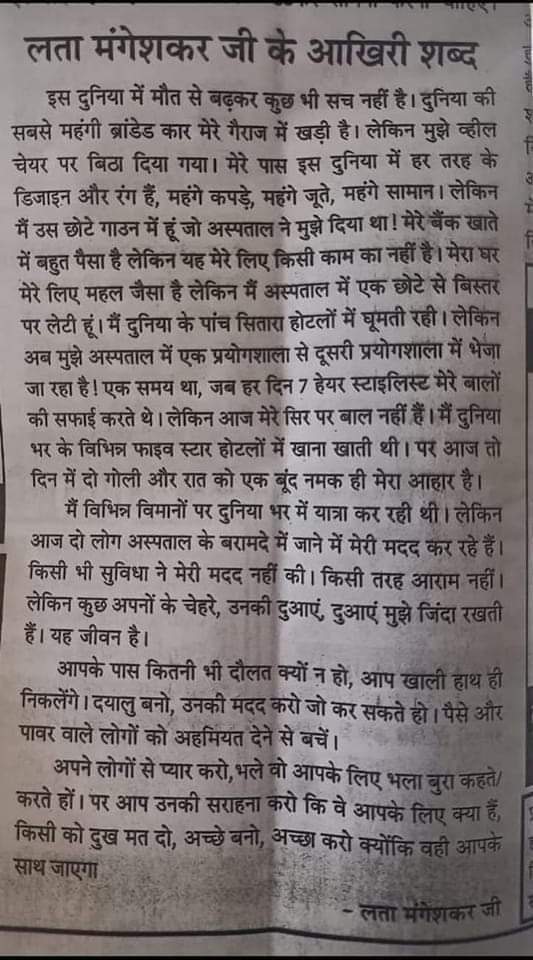 लता मंगेशकर जी के आखिरी शब्द
इस दुनिया में मौत से बढ़कर कुछ भी सच नहीं है। दुनिया की
सबसे महंगी ब्रांडेड कार मेरे गैराज में खड़ी है। लेकिन मुझे व्हील
चेयर पर बिठा दिया गया। मेरे पास इस दुनिया में हर तरह के
डिजाइन और रंग हैं, महंगे कपड़े, महंगे जूते, महंगे सामान। लेकिन
मैं उस छोटे गाउन में हूं जो अस्पताल ने मुझे दिया था! मेरे बैंक खाते
में बहुत पैसा है लेकिन यह मेरे लिए किसी काम का नहीं है। मेरा घर
मेरे लिए महल जैसा है लेकिन मैं अस्पताल में एक छोटे से बिस्तर
पर लेटी हूं। मैं दुनिया के पांच सितारा होटलों में घूमती रही। लेकिन
अब मुझे अस्पताल में एक प्रयोगशाला से दूसरी प्रयोगशाला में भेजा
जा रहा है! एक समय था, जब हर दिन 7 हेयर स्टाइलिस्ट मेरे बालों
की सफाई करते थे। लेकिन आज मेरे सिर पर बाल नहीं हैं। मैं दुनिया
भर के विभिन्न फाइव स्टार होटलों में खाना खाती थी। पर आज तो
दिन में दो गोली और रात को एक बूंद नमक ही मेरा आहार है।
मैं विभिन्न विमानों पर दुनिया भर में यात्रा कर रही थी। लेकिन
आज दो लोग अस्पताल के बरामदे में जाने में मेरी मदद कर रहे हैं।
किसी भी सुविधा ने मेरी मदद नहीं की। किसी तरह आराम नहीं।
लेकिन कुछ अपनों के चेहरे, उनकी दुआएं, दुआएं मुझे जिंदा रखती
हैं। यह जीवन है।
आपके पास कितनी भी दौलत क्यों न हो, आप खाली हाथ ही
निकलेंगे। दयालु बनो, उनकी मदद करो जो कर सकते हो। पैसे और
पावर वाले लोगों को अहमियत देने से बचें।
अपने लोगों से प्यार करो,भले वो आपके लिए भला बुरा कहते/
करते हों। पर आप उनकी सराहना करो कि वे आपके लिए क्या हैं,
किसी को दुख मत दो, अच्छे बनो, अच्छा करो क्योंकि वही आपके
साथ जाएगा
- लता मंगेशकर जी